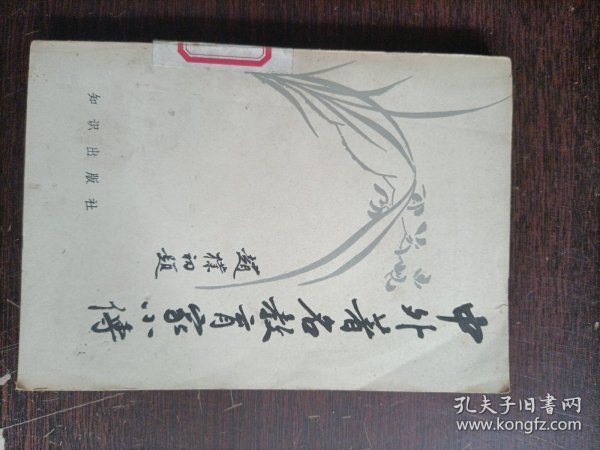 中外著名教育家小傳
趙樸初題
知识出版社
孔夫子旧書网
www.kongfz.com